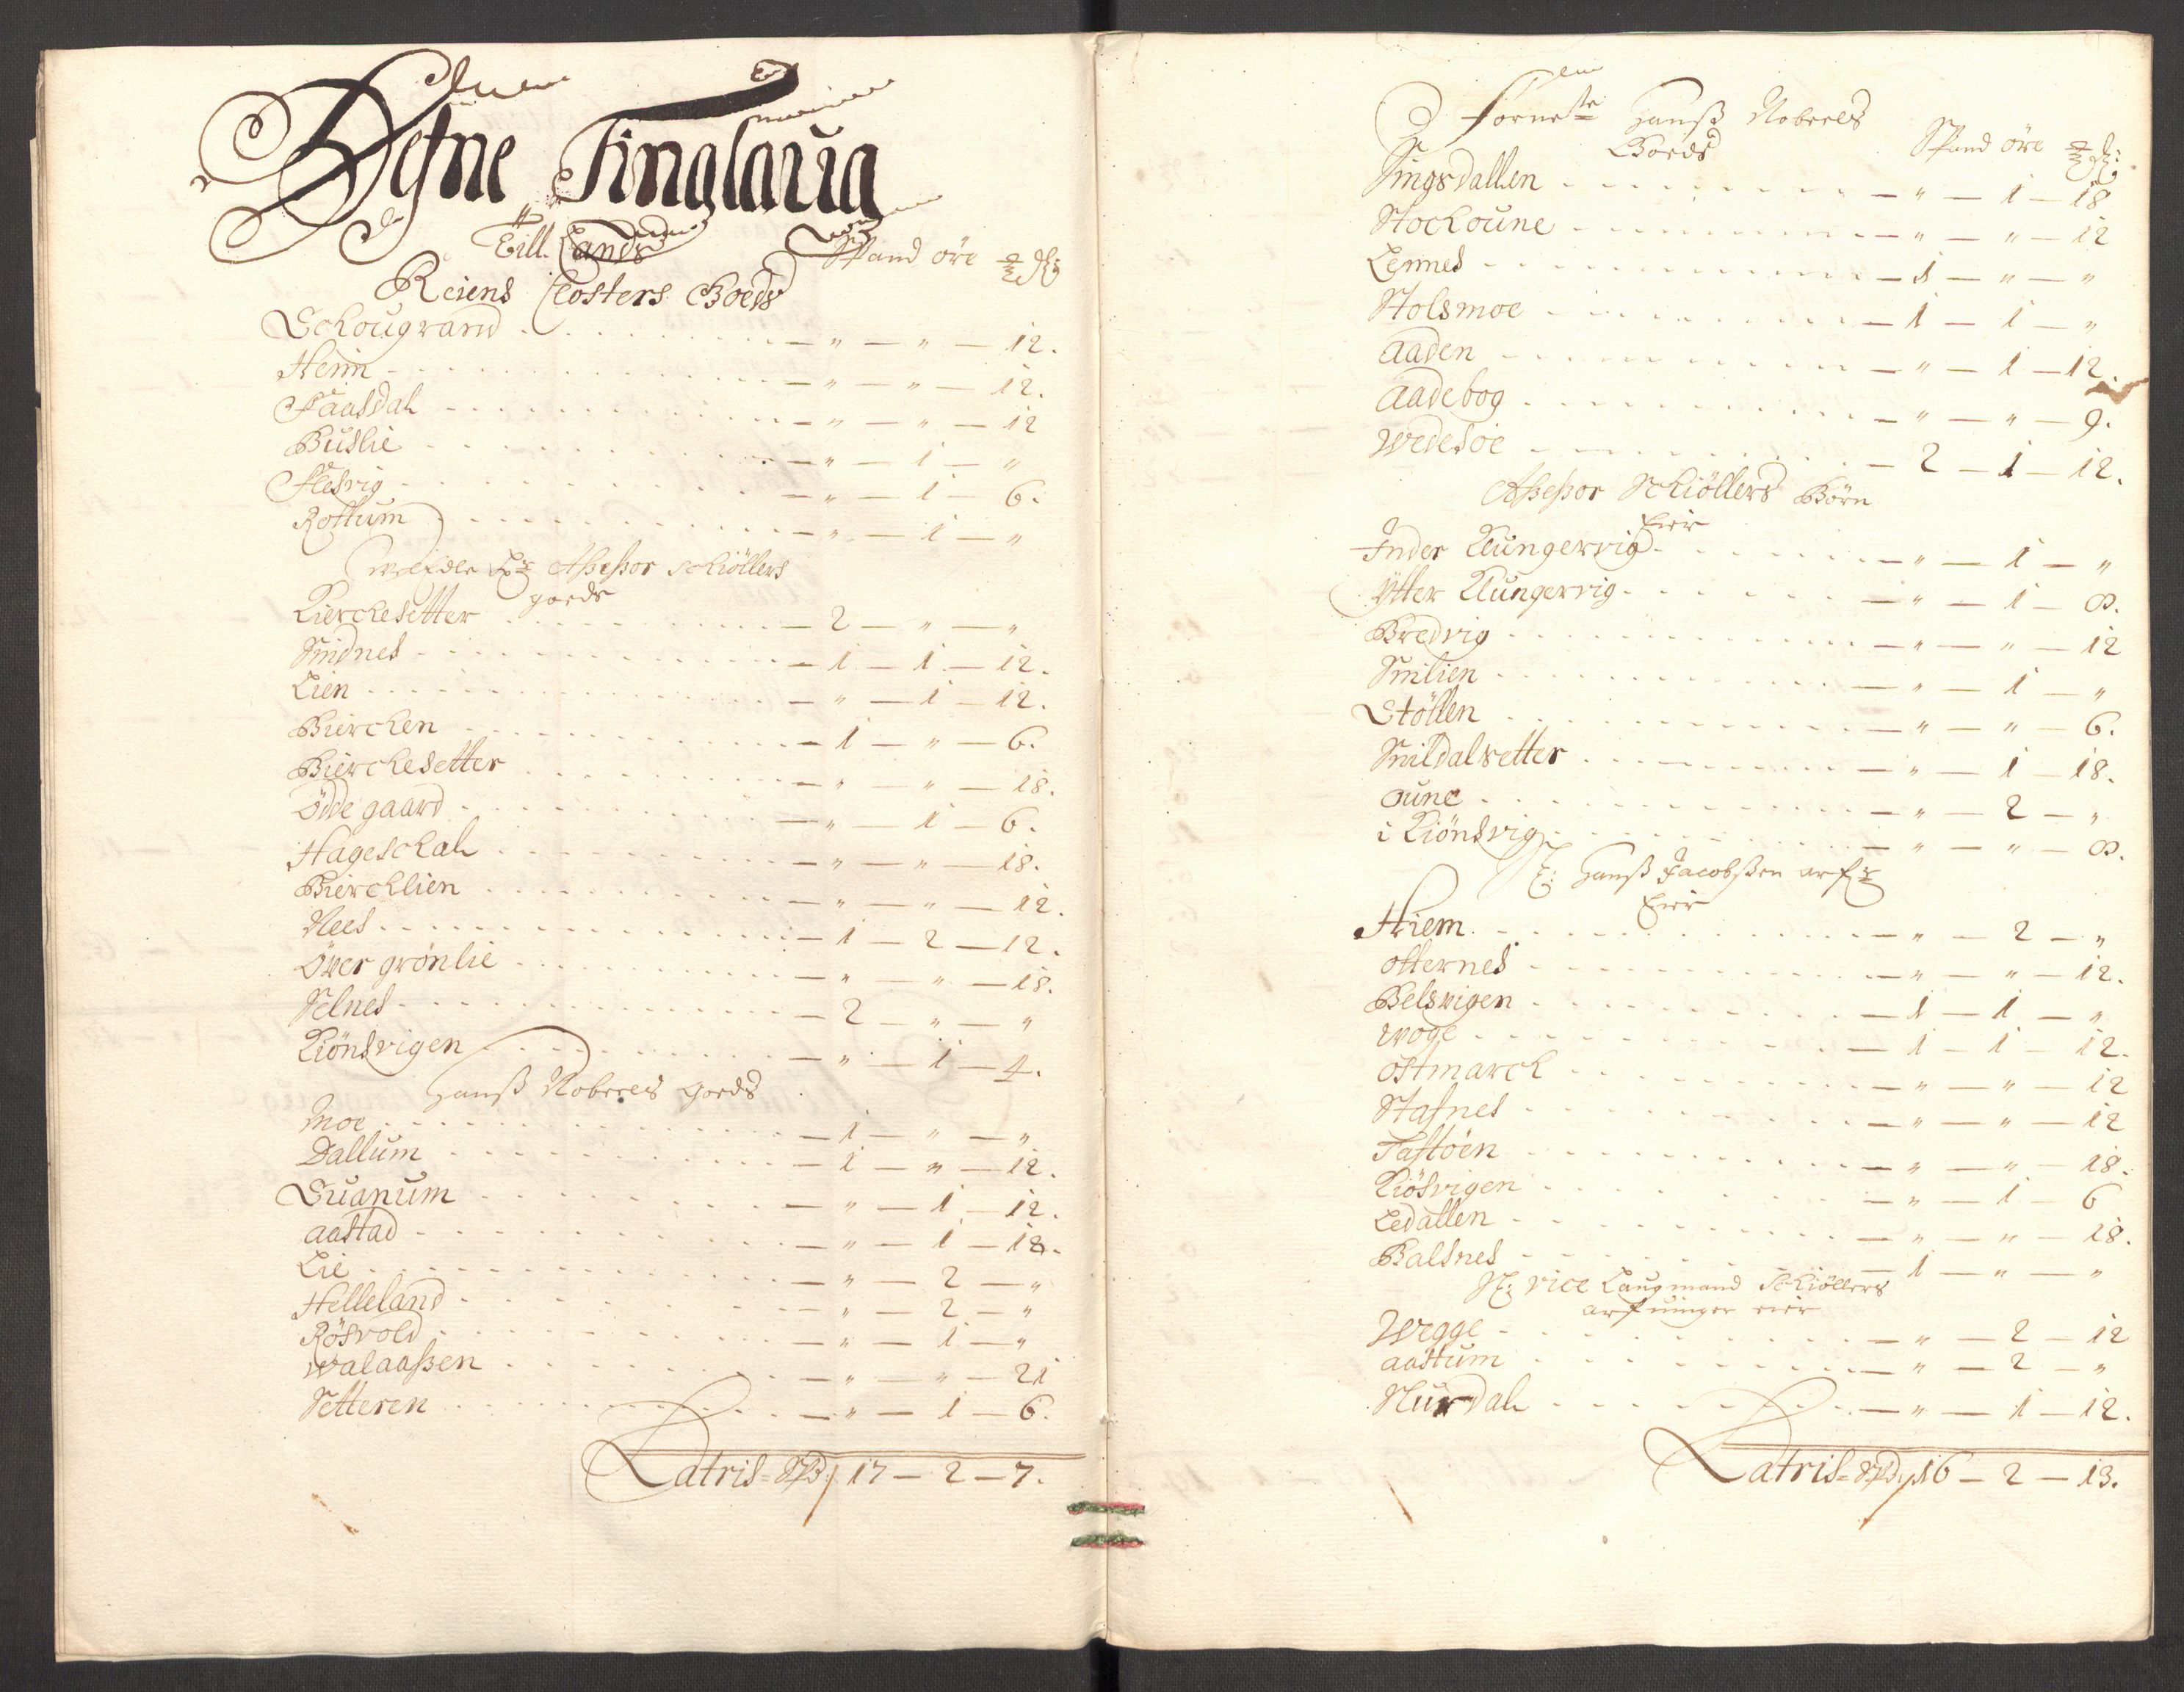 Hefne Tinglaug
Till Lands
Spand öre
Reiens Closters Goeds
Schougrand — " — " — 12.
Heim — " — " — 12.
Faasdal — " — " — 12
Buslie — " — 1 — "
Flesvig — " — 1 — 6.
Rottum — " — 1 — "
Assessor Schiöllers
goeds
Kierchesetter — 2 — " — "
Snidnes — 1 — 1 — 12.
Lien — " — 1 — 12.
Bierchen — 1 — " — 6.
Bierchesetter — " — " — 18.
Ödde gaard — " — 1 — 6.
Hageschal — " — " — 18.
Bierchlien — " — " — 12.
Nees — 1 — 2 — 12.
Över grönlie — " — " — 18.
Selnes — 2 — " — "
Kiönsvigen — " — 1 — 4.
Hanß Noberes goeds
Moe — 1 — " — "
Dallum — 1 — " — 12.
Suanum — " — 1 — 12.
aastad — " — 1 — 18.
Lie — " — 2 — "
Helleland — " — 2 — "
Rösvold — " — 1 — "
Walaaßen — " — " — 21
Setteren — " — 1 — 6.
Latris = 17 — 2 — 7.
Forne Hanß Noberes
Goeds
Spand öre
Singsdallen — " — 1 — 18
Stochoune — " — " — 12
Lennes — 1 — " — "
Stolsmoe — 1 — 1 — "
Aaden — " — 1 — 12.
Aadebog — " — " — 9.
Wedesöe — 2 — 1 — 12.
Aßeßor Schiöllers Börn
Eier
Inder Klungervig — " — 1 — "
Ytter Klungervig — " — 1 — 8.
Bredvig — " — " — 12
Snilien — " — 1 — "
Stöllen — " — " — 6.
Snildalsetter — " — 1 — 18.
oune — " — 2 — "
i Kiönsvig — " — " — 8.
Hanß Jacobßen arf
Eier
Hiem — " — 2 — "
otternes — " — " — 12.
Belsvigen — 1 — 1 — "
Woge — 1 — 1 — 12.
ostmarch — " — " — 12
Stafnes — " — " — 12
Taftöen — " — " — 18.
Kiösvigen — " — 1 — 6
Ledallen — " — " — 18.
Balsnes — 1 — " — "
vice Laugmand Schiöllers
arfuinger eier
Wegge — " — 2 — 12
aastum — " — 2 — "
Slurdal — " — 1 — 12.
Latris = 16 — 2 — 13.